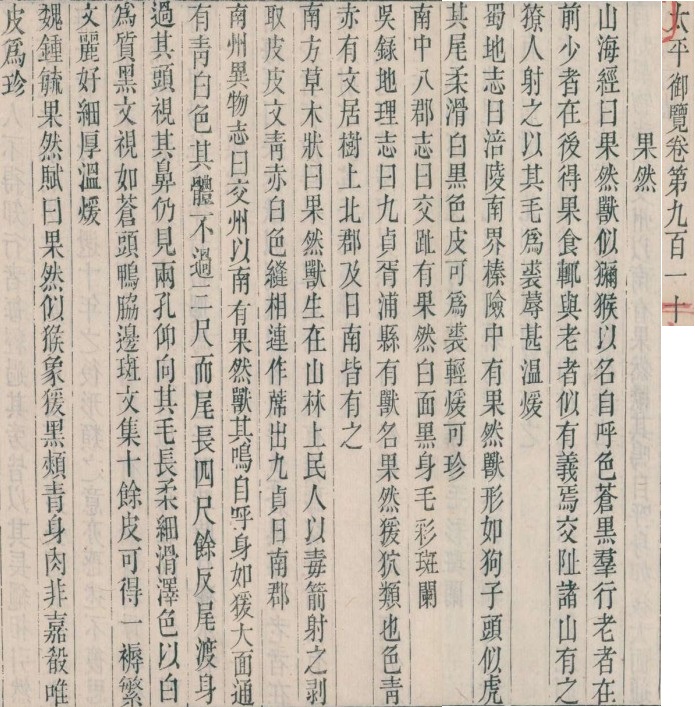 太平御覽卷第九百一十
果然
山海經曰果然獸似獼猴以名自呼色蒼黑羣行老者在
前少者在後得果食輒與老者似有義焉交阯諸山有之
獠人射之以其毛爲裘蓐甚溫煖
蜀地志曰涪陵南界榛險中有果然獸形如狗子頭似虎
其尾柔滑白黑色皮可爲裘輕煖可珍
南中八郡志曰交趾有果然白面黑身毛彩斑闌
吳錄地理志曰九貞胥浦縣有獸名果然猨狖類也色青
赤有文居樹上北郡及日南皆有之
南方草木狀曰果然獸生在山林上民人以毒箭射之剥
取皮皮文青赤白色縫相連作蓆出九貞日南郡
南州異物志曰交州以南有果然獸其鳴自呼身如猨大面通
有青白色其體不過三尺而尾長四尺餘反尾渡身
過其頭視其鼻仍見兩孔仰向其毛長柔細滑澤色以白
爲質黑文視如蒼頭鴨脇邊斑文集十餘皮可得一褥繁
文麗好細厚溫煖
魏鍾毓果然賦曰果然似猴象猨黑頰青身肉非嘉殽唯
皮爲珍